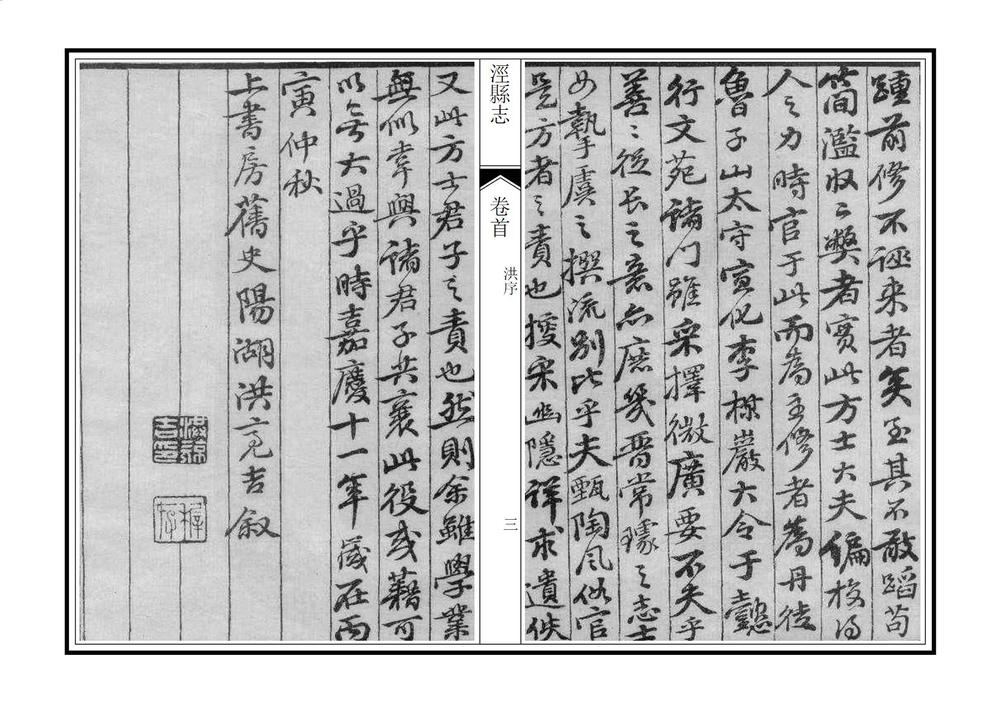 踵前修不誣来者矣至其不敢蹈苟
簡濫收之弊者實此方士大夫編校得
人之力時官于此而為主修者為丹徒
魯子山太守宣化李
巖大令于
行文苑諸門雖采擇微廣要不失乎
善善從長之意亦庶幾晋常璩之志士
女摯虞之撰流别比乎夫甄陶風俗官
是方者之責也援采幽隱詳求遺佚
涇縣志
卷首
洪序
三
又此方士君子之責也然則余雖學業
無似幸與諸君子共襄此役或藉可
以無大過乎時嘉慶十一年歲在丙
寅仲秋
上書房舊史陽湖洪亮吉叙
洪亮吉印